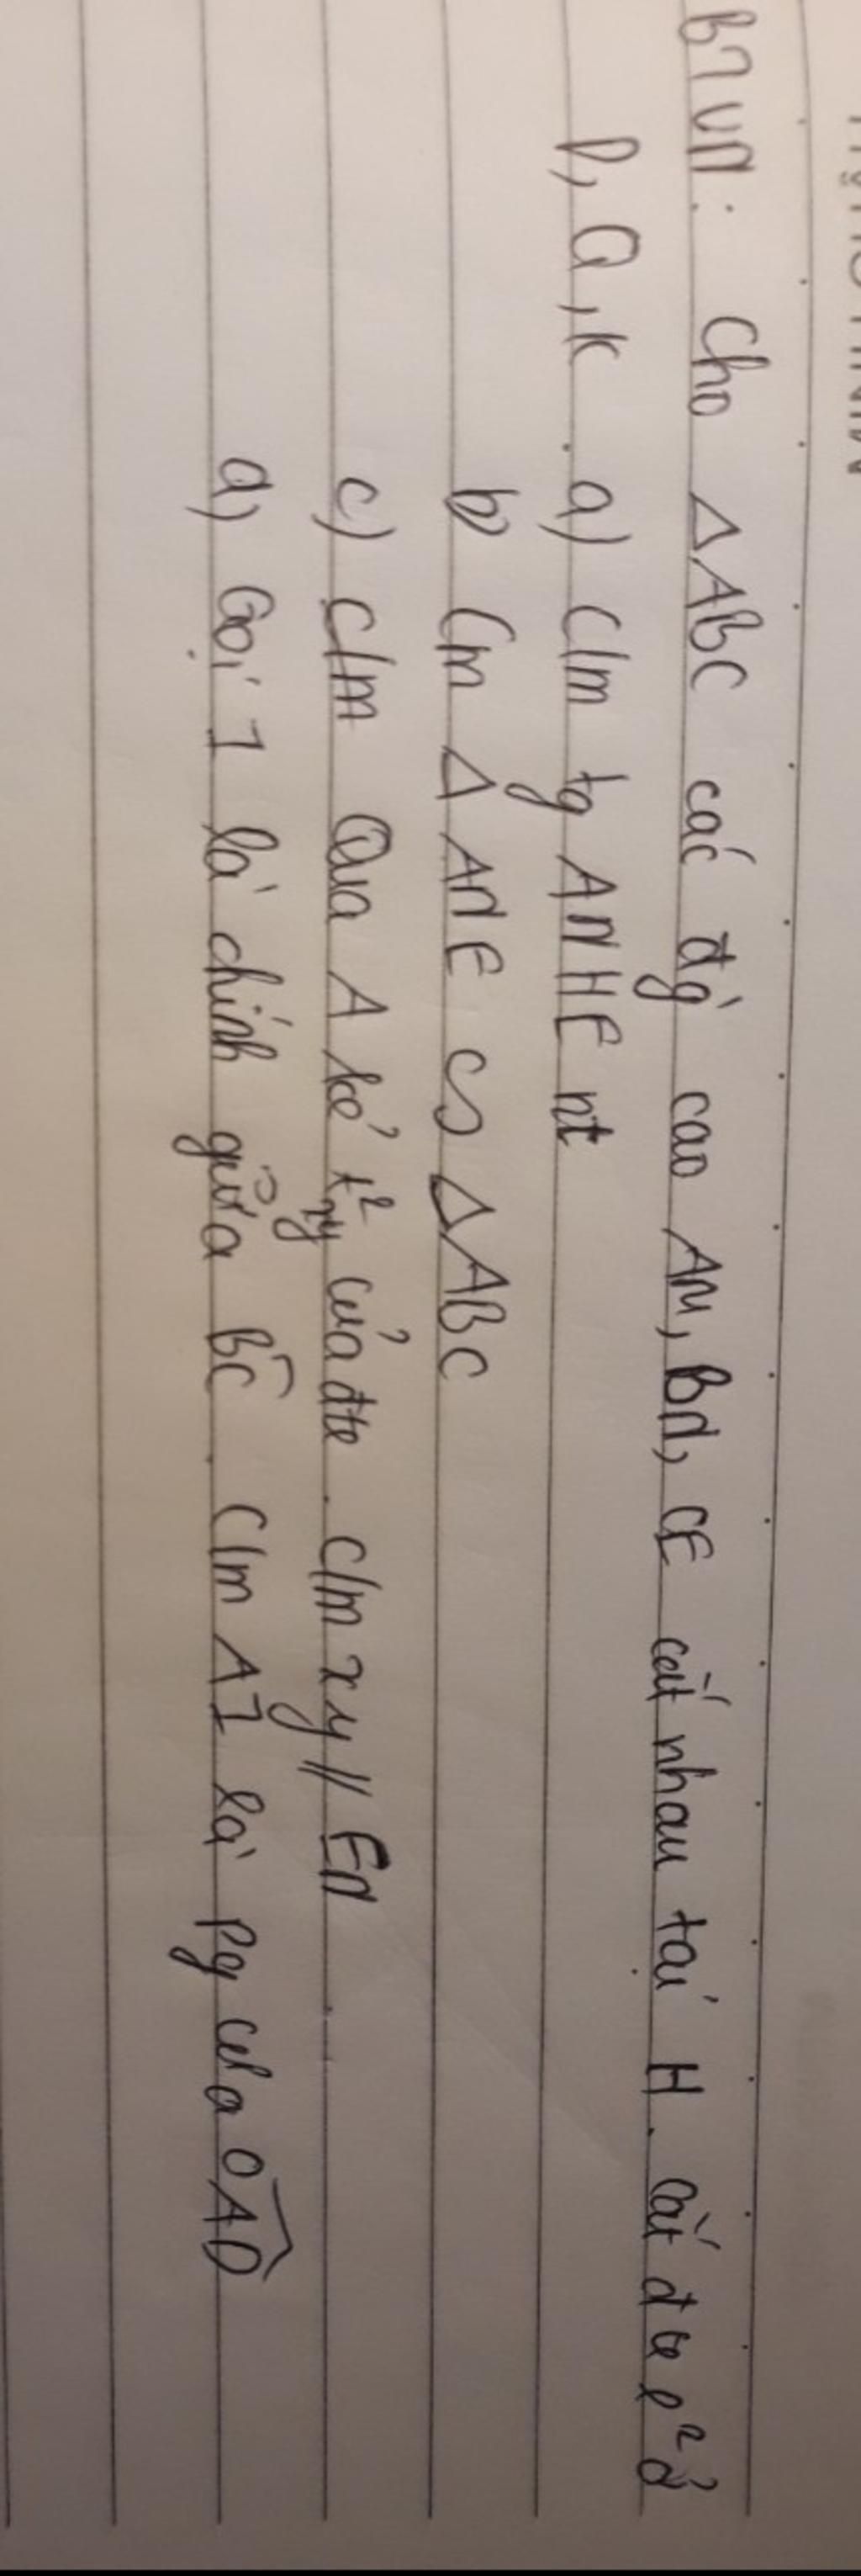 BTVN: Cho ΔABC các đg cao AM, BN, CE cắt nhau tại H. Cắt đtr l² ở
D, Q, K. a) C/m tg ANHE nt
b) Cm Δ ANE ∽ ΔABC
c) C/m Qua A kẻ t² xy của đtr. C/m xy // EN
d) Gọi I là chính giữa BC. C/m AI là pg của OAD